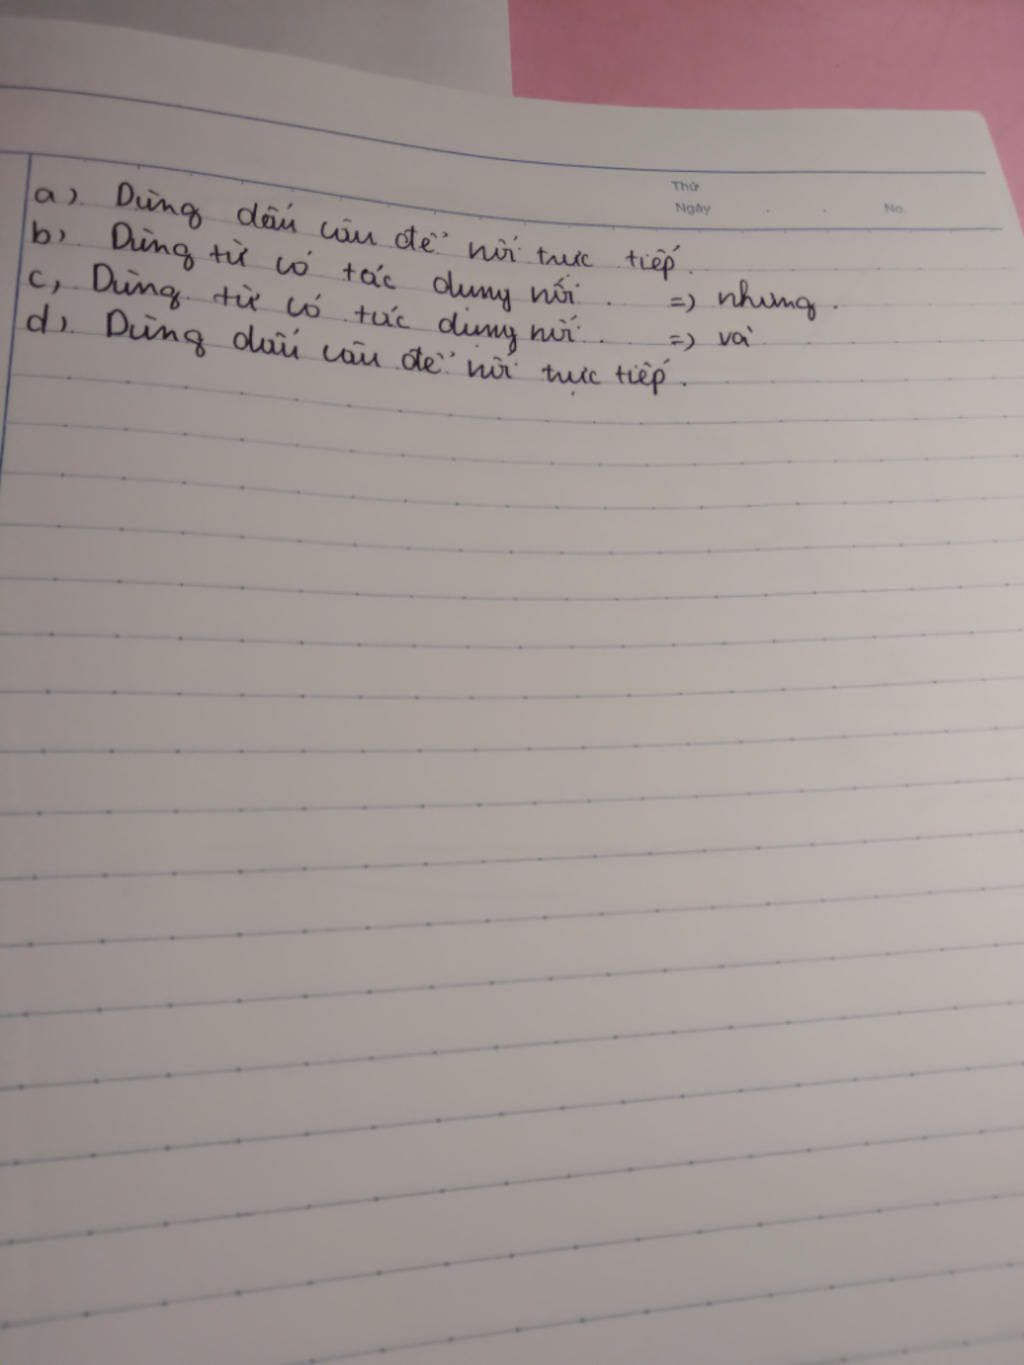 Thứ
Ngày . . No.
a). Dùng dấu câu để nối trực tiếp.
b). Dùng từ có tác dụng nối. => nhưng.
c, Dùng từ có tác dụng nối. => và
d). Dùng dấu câu để nối trực tiếp.